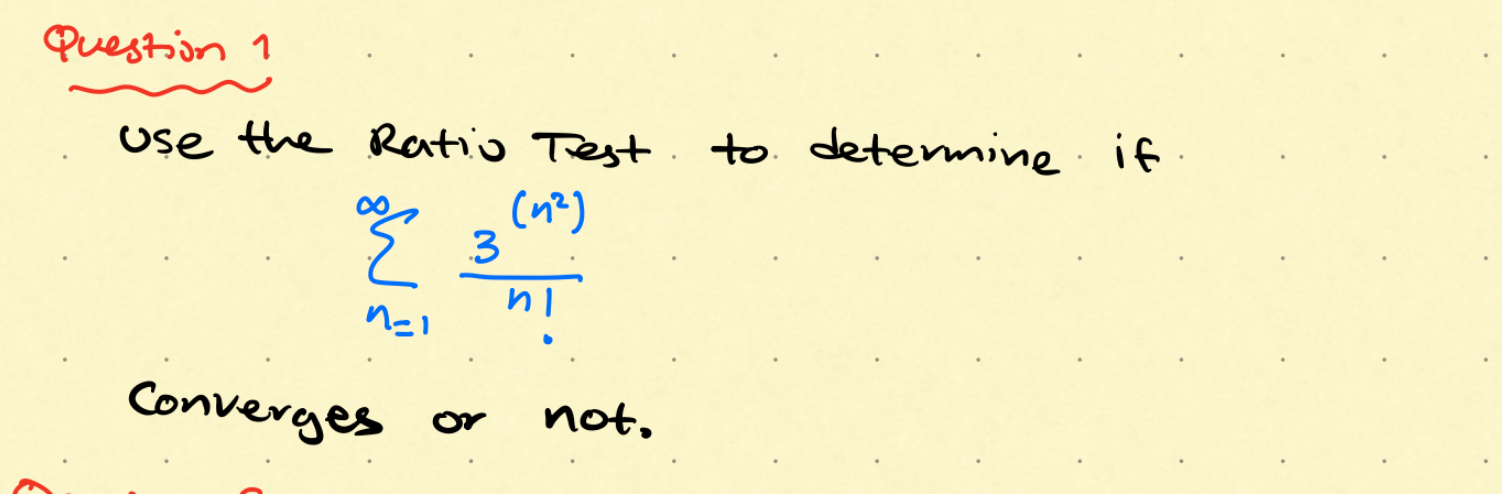 Question 1
Use the Ratio Test to determine if
∞
∑ 3^(n²) / n!
n=1
Converges or not.